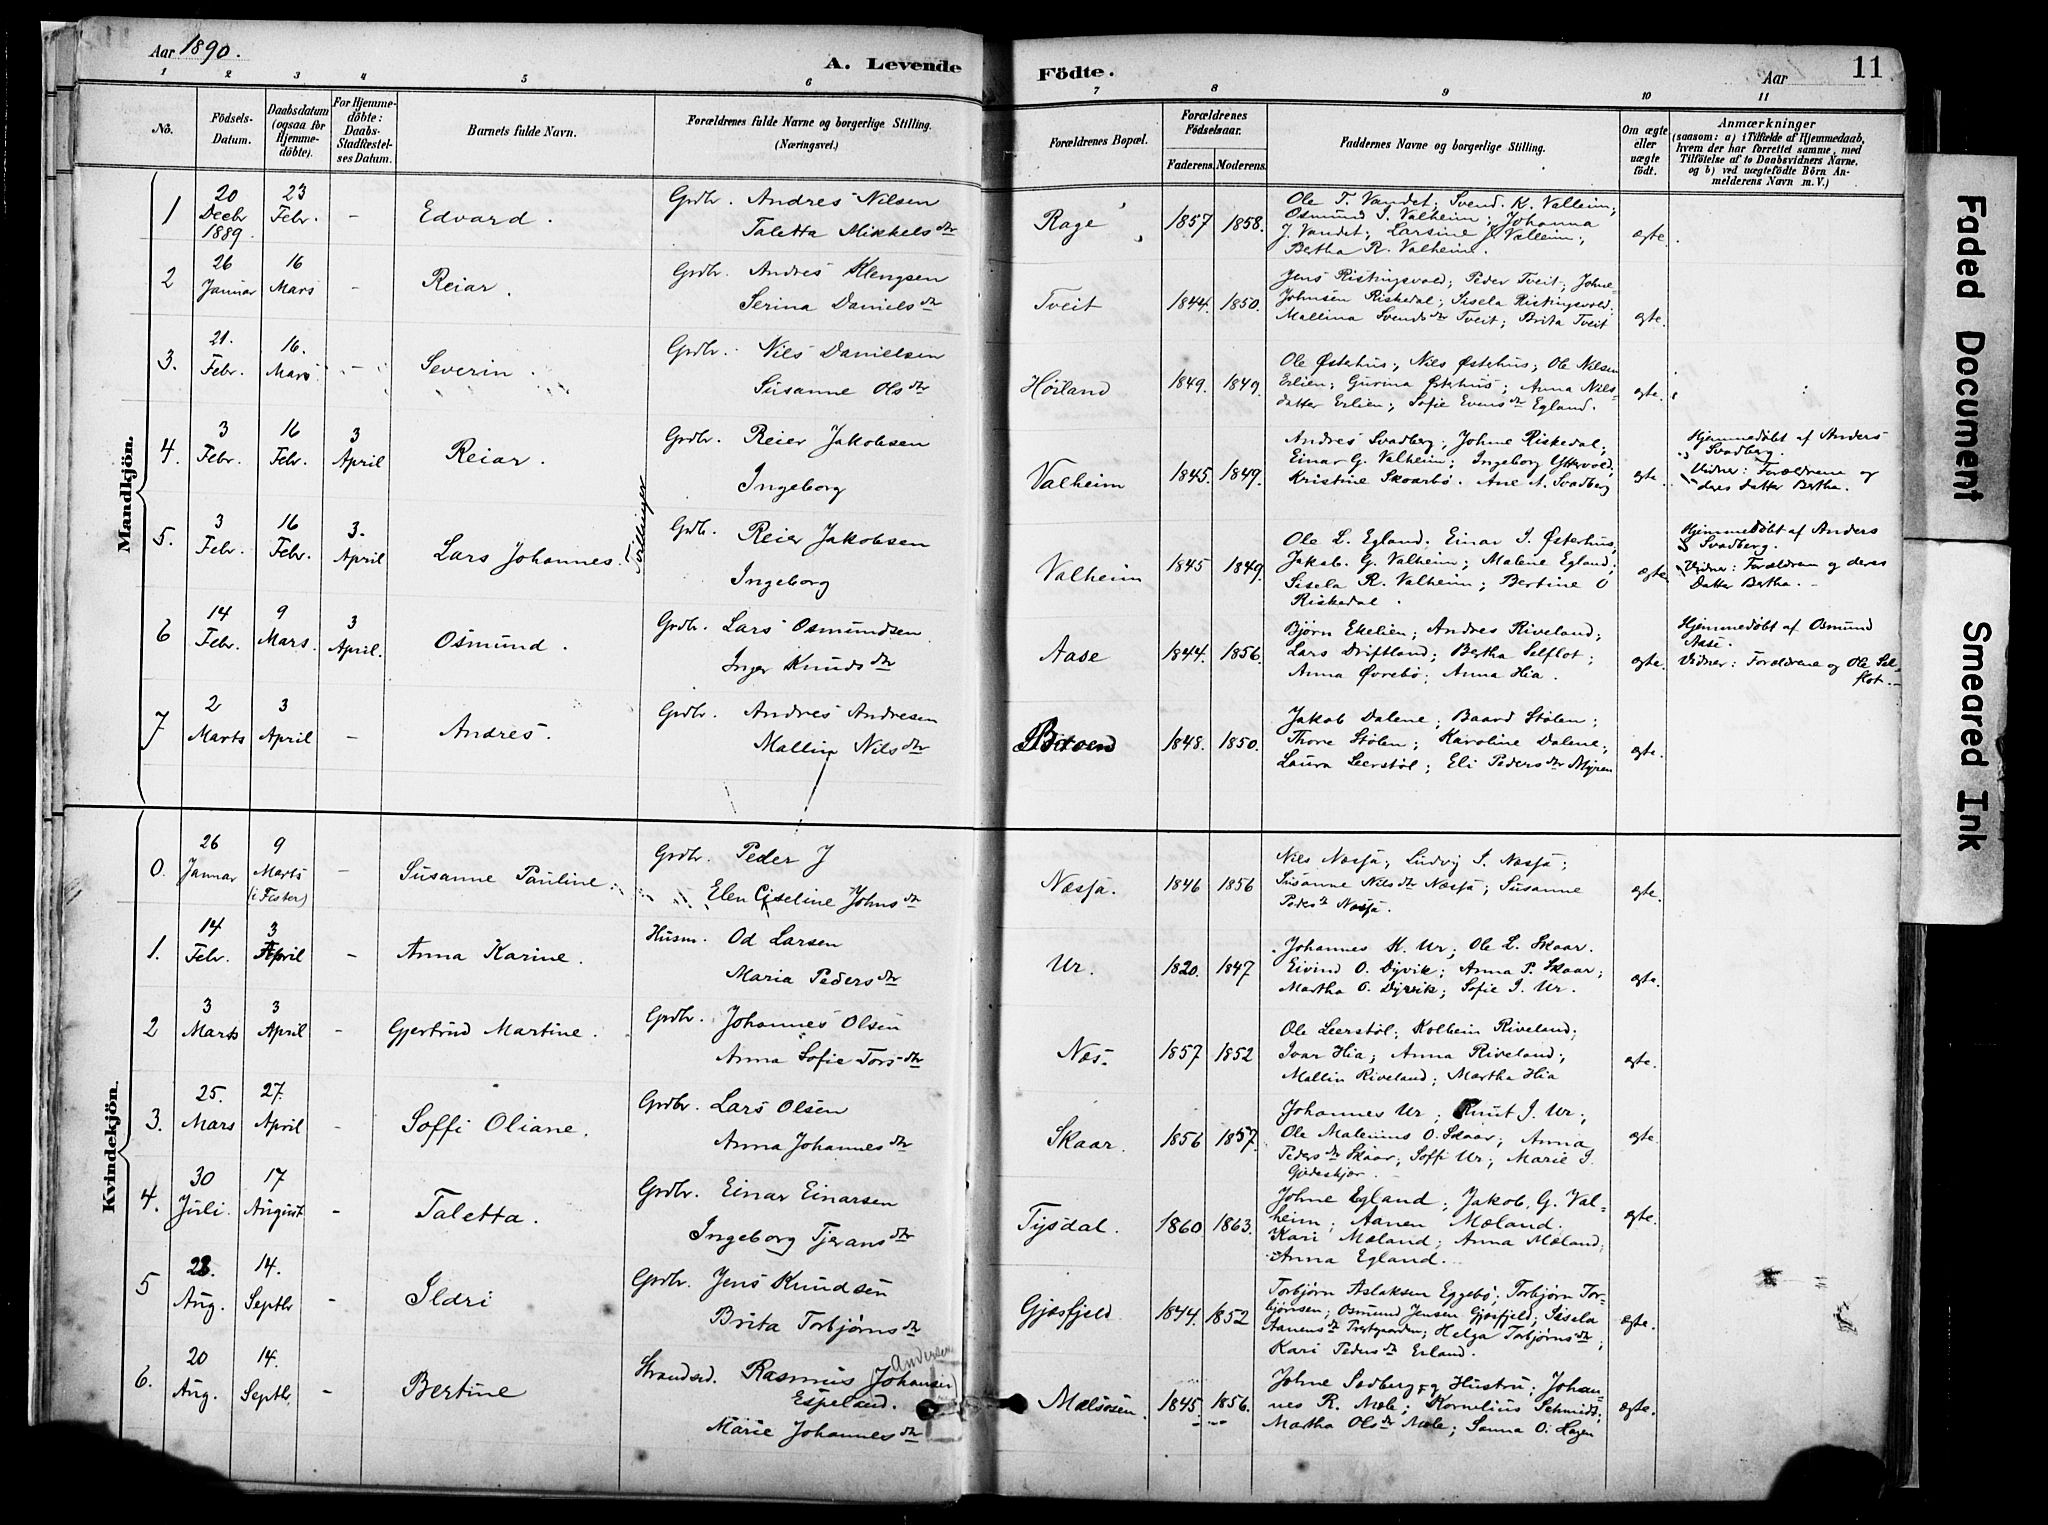 Aar 1890.
A. Levende Födte.
Aar
11
1 2 3 4 5 6 7 8 9 10 11
No.
Födsels-Datum.
Daabsdatum (ogsaa for Hjemme-döbte).
For Hjemme-döbte: Daabs-Stadfæstel-ses Datum.
Barnets fulde Navn.
Forældrenes fulde Navne og borgerlige Stilling. (Næringsvei.)
Forældrenes Bopæl.
Forældrenes Födselsaar.
Faderens. Moderens.
Faddernes Navne og borgerlige Stilling.
Om ægte eller uægte födt.
Anmærkninger
(saasom: a) i Tilfælde af Hjemmedaab, hvem der har forrettet samme, med Tilföielse af to Daabsvidners Navne, og b) ved uægtefödte Börn An-melderens Navn m. V.)
Mandkjön.
1 20 Decbr 1889. 23 Febr. - Edvard. Grdbr. Andres Nilsen
Taletta Mikkelsdtr
Rage 1857 1858. Ole T. Vandet; Svend. K. Valleim;
Osmund I. Valheim; Johanna
J. Vandet; Larsine J. Valleim;
Bertha R. Valheim. ægte.
2 26 Januar 16 Mars - Reiar. Grdbr. Andres Klengsen
Serina Danielsdtr
Tveit 1844. 1850. Jens Ristingsvold; Peder Tveit; Johne
Johnsen Riskedal; Sisela Ristingsvold;
Mallina Svendsdtr Tveit; Brita Tveit ægte.
3. 21. Febr. 16. Mars - Severin. Grdbr. Nils Danielsen
Susanne Olsdtr
Høiland 1849. 1849. Ole Østerhus; Nils Østerhus; Ole Nilsen
Erlien; Gurina Østerhus; Anna Nils-
datter Erlien; Sofie Evensdtr Egland. ægte.
4. 3 Febr. 16 Febr. 3 April Reiar. Grdbr. Reier Jakobsen
Ingeborg
Tvillinger
Valheim 1845. 1849. Andres Svadberg; Johne Riskedal;
Einar G. Valheim; Ingeborg Yttervold;
Kristine Skaarbø. Ane A. Svadberg ægte.
Hjemmedøbt af Anders
Svadberg.
Vidner: Forældrene og
deres datter Bertha.
5. 3 Febr. 16 Febr. 3. April Lars Johannes. Grdbr. Reier Jakobsen
Ingeborg
Valheim 1845 1849. Ole L. Egland. Einar I. Østerhus;
Jakob. G. Valheim; Malene Egland;
Sisela R. Valheim; Bertine O
Riskedal. ægte
Hjemmedøbt af Anders
Svadberg.
Vidner: Forældrene og deres
Datter Bertha.
6 14 Febr. 9 Mars. 3 April. Osmund. Grdbr. Lars Osmundsen
Inger Knudsdtr
Aase 1844. 1856. Bjørn Ekelien; Andres Riveland;
Lars Driftland; Bertha Selflot;
Anna Øvrebø; Anna Hia. ægte.
Hjemmedøbt af Osmund
Aase.
Vidner: Forældrene og Ole Sel-
flot.
7 2 Marts 3 April - Andres. Grdbr. Andres Andresen
Mallin Nilsdtr
1848. 1850. Jakob Dalene; Baard Stølen;
Thore Stølen; Karoline Dalene;
Laura Leerstøl; Eli Pedersdtr Myren ægte.
Kvindekjön.
0. 26 Januar 9 Marts (i Fister) - Susanne Pauline. Grdbr. Peder J
Elen Ciseline Johnsdtr
Næsja. 1846 1856 Nils Næsja; Ludvig I. Næsja;
Susanne Nilsdtr Næsja; Susanne
Pedersdtr Næsja. ægte.
1. 14 Febr. 3 April - Anna Karine. Husm. Od Larsen
Maria Pedersdtr
Ur. 1820. 1847 Johannes K. Ur; Ole L. Skaar.
Eivind O. Dyvik; Anna P. Skaar;
Martha O. Dyrvik; Sofie I. Ur. ægte.
2 3 Marts 3 April - Gjertrud Martine. Grdbr. Johannes Olsen
Anna Sofie Torsdtr
Næs. 1857 1852 Ole Leerstøl; Kolbein Riveland;
Ivar Hia; Anna Riveland;
Mallin Riveland; Martha Hia ægte.
3. 25. Mars 27. April - Soffi Oliane. Grdbr. Lars Olsen
Anna Johannesdtr
Skaar. 1856 1857. Johannes Ur; Knut J. Ur;
Ole Malenius O. Skaar; Anna
Pedersdtr Skaar; Soffi Ur; Marie I.
ægte.
4. 30 Juli. 17 August - Taletta. Grdbr. Einar Einarsen
Ingeborg Tjeransdtr
Tysdal. 1860 1863. Johne Egland; Jakob. G. Val-
heim; Aanen Mæland.
Kari Mæland; Anna Mæland;
Anna Egland. ægte.
5 28. Aug. 14. Septbr - Ildri Grdbr. Jens Knudsen
Brita Torbjørnsdtr
Gjøsfjeld 1844. 1852 Torbjørn Aslaksen Eggebø; Torbjørn Tor-
bjørnsen; Osmund Jensen Gjøsfjeld; Sisela
Aanensdtr Prestgarden; Helga Torbjørnsdtr;
Kari Pedersdtr Erland. ægte.
6. 20 Aug. 14. Septbr. - Bertine Strandsd. Rasmus (Johansen) Andersen
Espeland.
Marie Johannesdtr
Mælsosen. 1845 1856. Johne Sadberg og Hustru; Johan-
nes R. Mæle; Kornelius Schmidt;
Martha Olsdtr Mæle; Sanna O. Hagen ægte.
Faded Document
Smeared Ink